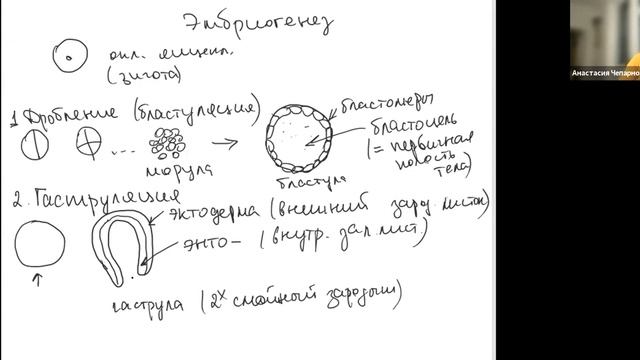 Эмбриогенез
опл. яйцекл.
(зигота)
1. Дробление (бластуляция)
...
морула
бластула
бластомеры
бластоцель
(= первичная
полость
тела)
2. Гаструляция
эктодерма (внешний зард. листок)
энто- (внутр. зап. лист.)
гаструла (2х слойный зародыш)
Анастасия Чепарно